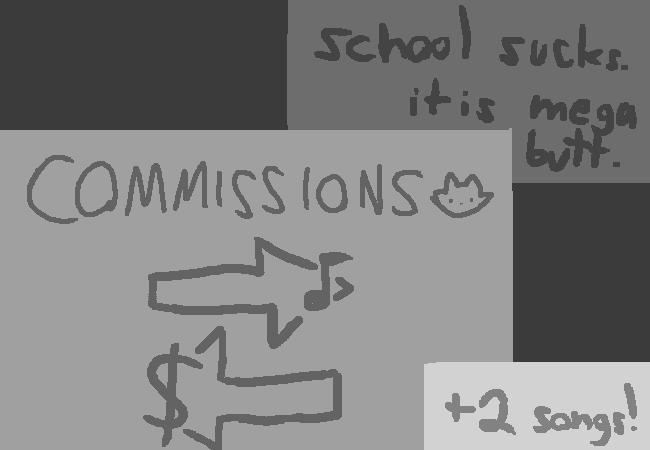 school sucks.
it is mega
butt.
COMMISSIONS
$
+2 songs!